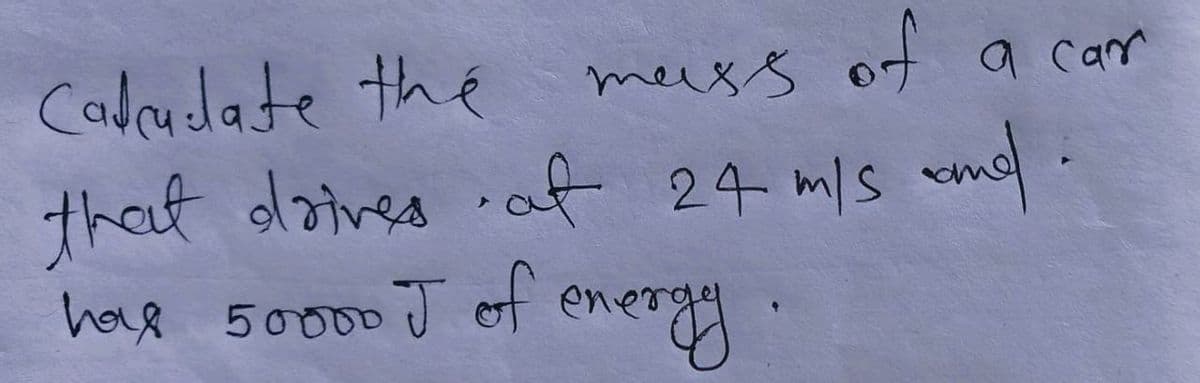 Calculate the mass of a car
that drives at 24 m/s and
has 50000 J of energy.